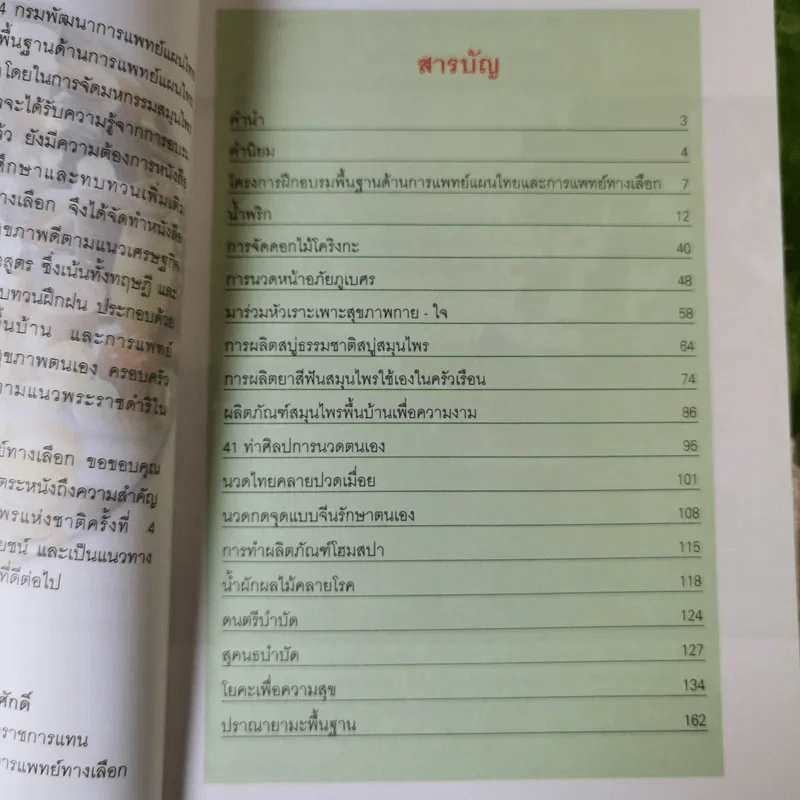 4 กรมพัฒนาการแพทย์แผนไทย
พื้นฐานด้านการแพทย์แผนไทย
โดยในการจัดมหกรรมสมุนไพร
จะได้รับความรู้จากการอบรม
ยังมีความต้องการหนังสือ
ศึกษาและทบทวนเพิ่มเติม
ทางเลือก จึงได้จัดทำหนังสือ
สุขภาพดีตามแนวเศรษฐกิจ
ซึ่งเน้นทั้งทฤษฎี และ
ทบทวนฝึกฝน ประกอบด้วย
พื้นบ้าน และการแพทย์
สุขภาพตนเอง ครอบครัว
ตามแนวพระราชดำริใน
ทางเลือก ขอขอบคุณ
ตระหนังถึงความสำคัญ
แห่งชาติครั้งที่ 4
และเป็นแนวทาง
ที่ดีต่อไป
ศักดิ์
ราชการแทน
การแพทย์ทางเลือก
สารบัญ
คำนำ 3
คำนิยม 4
โครงการฝึกอบรมพื้นฐานด้านการแพทย์แผนไทยและการแพทย์ทางเลือก 7
น้ำพริก 12
การจัดดอกไม้โคริงกะ 40
การนวดหน้าอภัยภูเบศร 48
มาร่วมหัวเราะเพาะสุขภาพกาย - ใจ 58
การผลิตสบู่ธรรมชาติสบู่สมุนไพร 64
การผลิตยาสีฟันสมุนไพรใช้เองในครัวเรือน 74
ผลิตภัณฑ์สมุนไพรพื้นบ้านเพื่อความงาม 86
41 ท่าศิลปการนวดตนเอง 95
นวดไทยคลายปวดเมื่อย 101
นวดกดจุดแบบจีนรักษาตนเอง 108
การทำผลิตภัณฑ์โฮมสปา 115
น้ำผักผลไม้คลายโรค 118
ดนตรีบำบัด 124
สุคนธบำบัด 127
โยคะเพื่อความสุข 134
ปราณายามะพื้นฐาน 162